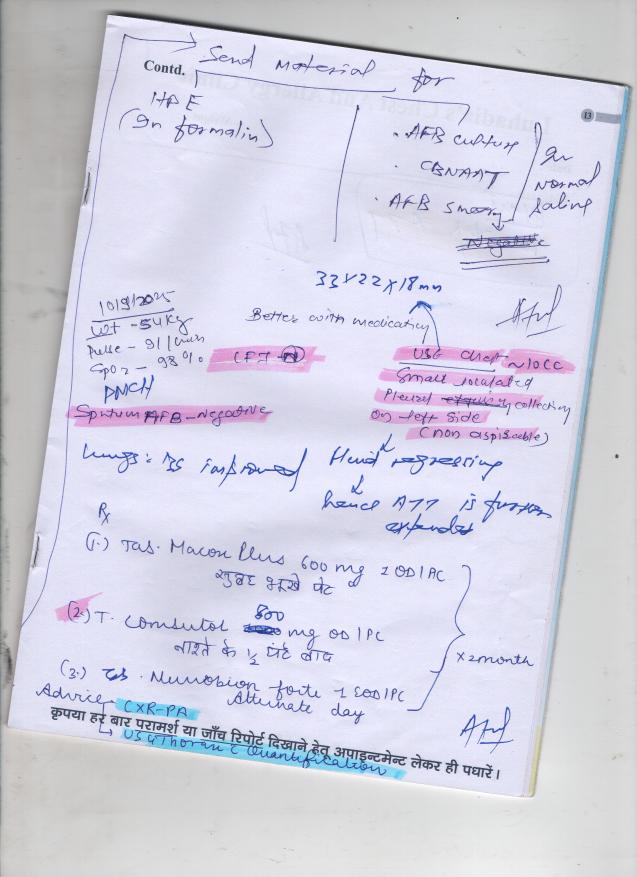 Contd.
13
Send material for
HPE
(In formalin)
• AFB culture
• CBNAAT
• AFB smear
In normal saline
Negative
33 x 22 x 18 mm
10/9/2025
Wt - 54 kg
Pulse - 91/min
SpO2 - 98%
Better with medication
LFT - N
USG chest ~10CC
Small loculated
Pleural collection
on left side
(non aspirable)
PMCH
Sputum AFB - Negative
Lungs: BS improved
Fluid regressing
hence ATT is further
extended
Rx
(1.) Tab. Macox Plus 600 mg 1 OD/AC
सुबह भूखे पेट
(2.) T. Combutol 800 mg OD/PC
नाश्ते के 1/2 घंटे बाद
(3.) Tab. Neurobion forte 1 OD/PC
Alternate day
x 2 month
Advice CXR-PA
कृपया हर बार परामर्श या जाँच रिपोर्ट दिखाने हेतू अपाइन्टमेन्ट लेकर ही पधारें।
USG Thorax c Quantification